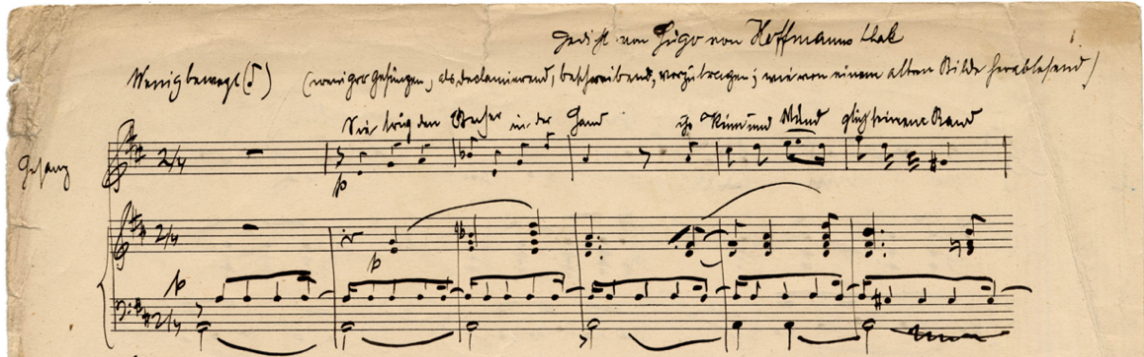 Gedicht von Hugo von Hoffmannsthal
1.
Wenig bewegt (♩) (weniger gesungen, als declamierend, beschreibend, vorzutragen; wie von einem alten Bilde herablesend)
Sie trug den Becher in der Hand ihr Kinn und Mund glich seinem Rand
Gesang
2/4
p
2/4
p
p
2/4